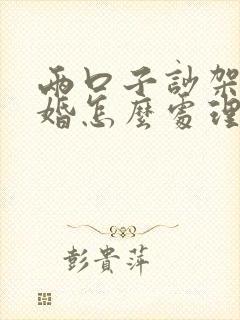 兩口子訃架
婚怎麼處理
彭貴萍